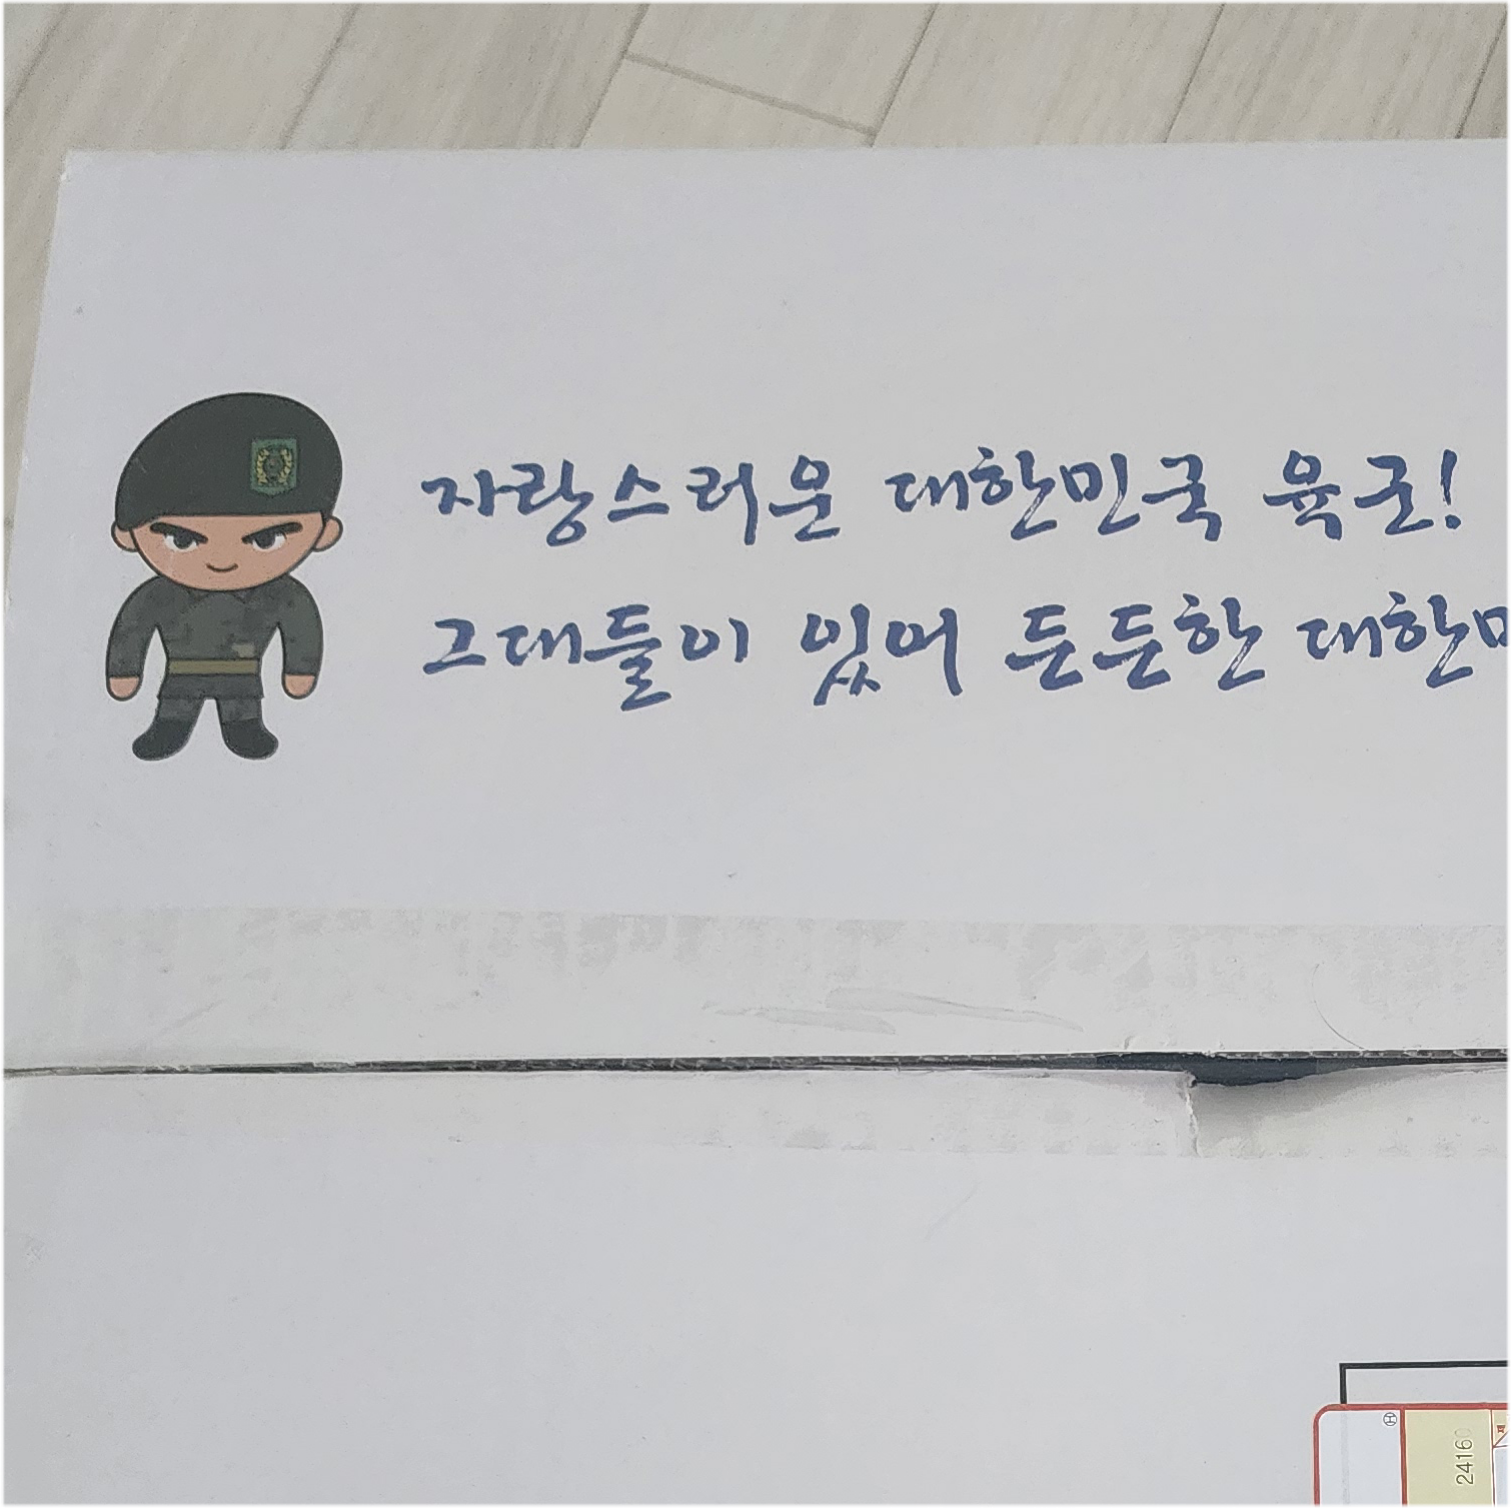 자랑스러운 대한민국 육군!
그대들이 있어 든든한 대한
2416